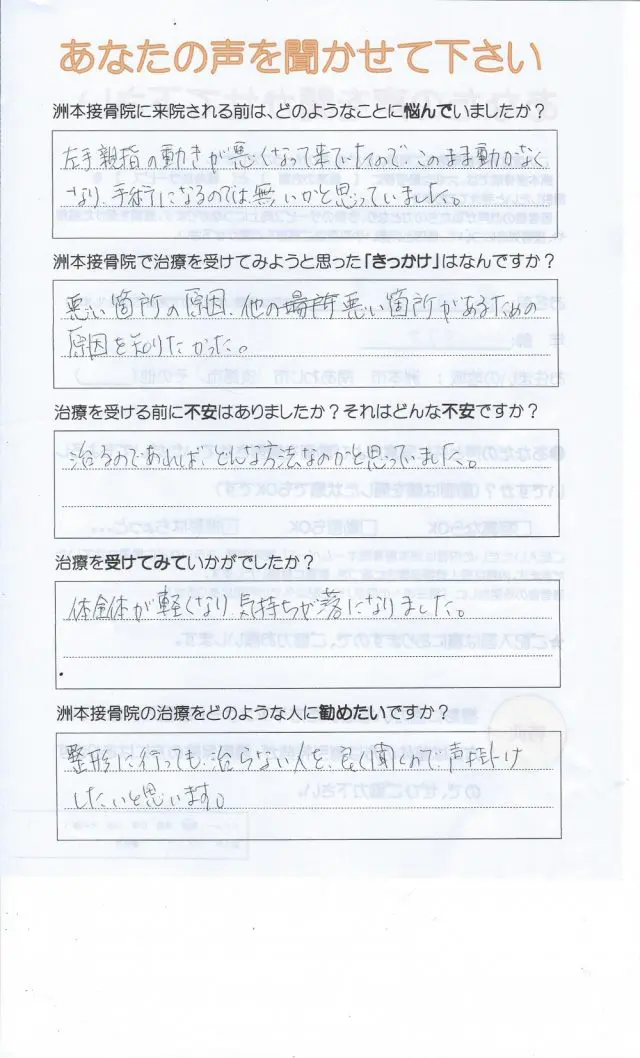 あなたの声を聞かせて下さい
洲本接骨院に来院される前は、どのようなことに悩んでいましたか？
左手親指の動きが悪くなって来ていたので、このまま動かなく
なり、手術になるのでは無いかと思っていました。
洲本接骨院で治療を受けてみようと思った「きっかけ」はなんですか？
悪い箇所の原因、他の場所悪い箇所があるための
原因を知りたかった。
治療を受ける前に不安はありましたか？それはどんな不安ですか？
治るのであれば、どんな方法なのかと思っていました。
治療を受けてみていかがでしたか？
体全体が軽くなり、気持ちが落になりました。
洲本接骨院の治療をどのような人に勧めたいですか？
整形に行っても、治らない人を、良く聞くので、声掛け
したいと思います。